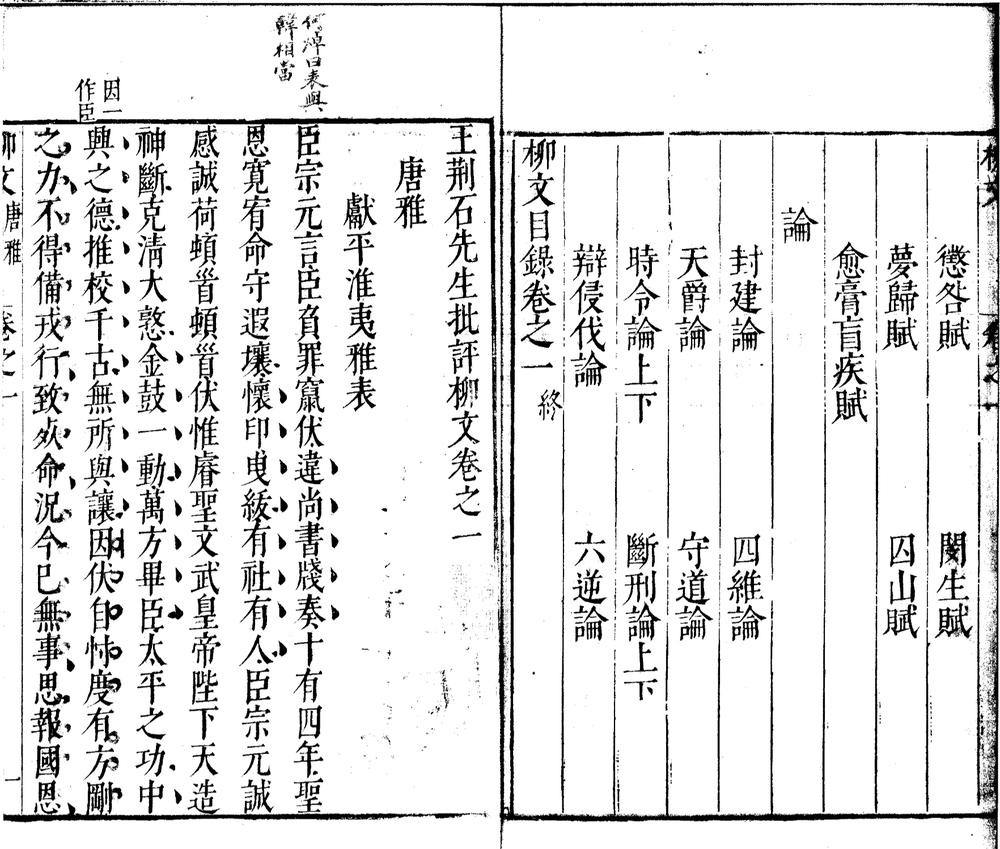 柳文 卷之一
懲咎賦 閔生賦
夢歸賦 囚山賦
愈膏肓疾賦
論
封建論 四維論
天爵論 守道論
時令論上下 斷刑論上下
辯侵伐論 六逆論
柳文目錄卷之一 終
何焯曰表與
韓相當
因一
作臣
王荊石先生批評柳文卷之一
唐雅
獻平淮夷雅表
臣宗元言臣負罪竄伏違尚書牋奏十有四年聖
恩寬宥命守遐壤懷印曳紱有社有人臣宗元誠
感誠荷頓首頓首伏惟睿聖文武皇帝陛下天造
神斷克清大憝金鼓一動萬方畢臣太平之功中
興之德推校千古無所與讓因伏自忖度有方剛
之力不得備戎行致死命況今已無事思報國恩
柳文 唐雅 卷之一 一